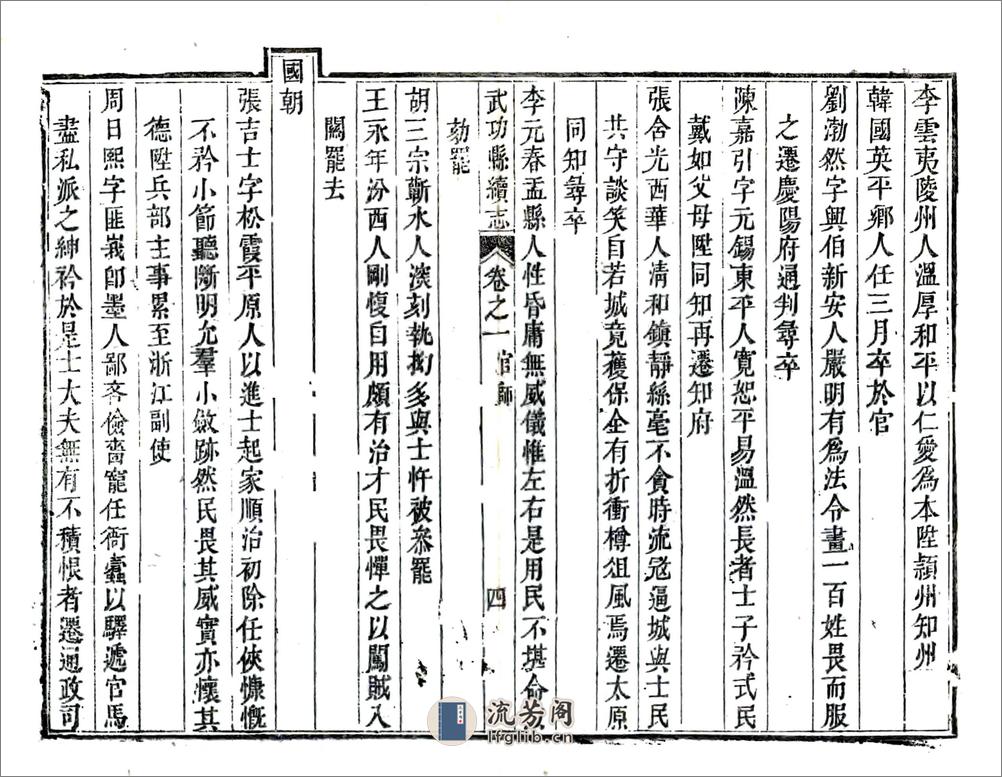 李雲夷陵州人溫厚和平以仁愛爲本陞潁州知州
韓國英平鄉人任三月卒於官
劉渤然字興伯新安人嚴明有爲法令畫一百姓畏而服
之遷慶陽府通判尋卒
陳嘉引字元錫東平人寬恕平易溫然長者士子矜式民
戴如父母陞同知再遷知府
張含光西華人清和鎮靜絲毫不貪時流冦逼城與士民
共守談笑自若城竟獲保全有折衝樽俎風焉遷太原
同知尋卒
李元春盂縣人性昏庸無威儀惟左右是用民不堪命
武功縣續志 卷之一 官師 四
劾罷
胡三宗蘄水人深刻執拗多與士忤被叅罷
王永年汾西人剛愎自用頗有治才民畏憚之以闖賊入
關罷去
國朝
張吉士字松霞平原人以進士起家順治初除任俠慷慨
不矜小節聽斷明允羣小斂跡然民畏其威實亦懷其
德陞兵部主事累至浙江副使
周日熙字匪莪卽墨人鄙吝儉嗇寵任衙蠹以驛遞官馬
盡私派之紳衿於是士大夫無有不積恨者遷通政司
流芳阁
lfglib.cn